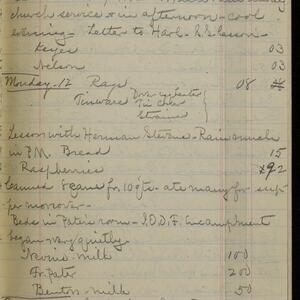 church service & in afternoon - cool
evening - Letter to Harl - S.S. Lesson -
Keyes 03
Nelson 03
Monday - 12 Rags 08
Tinware
Tin
Strainer
Lesson with Herman Stevens - Rain much
in P.M. Bread 15
Raspberries 92
Canned 8 cans for 100 cts - ate many for sup
per moreover -
Beds in Pater's room - I.O.O.F. Encampment
began - very quietly -
Irvine - milk 100
Fr. Pater 200
Benton - milk 50